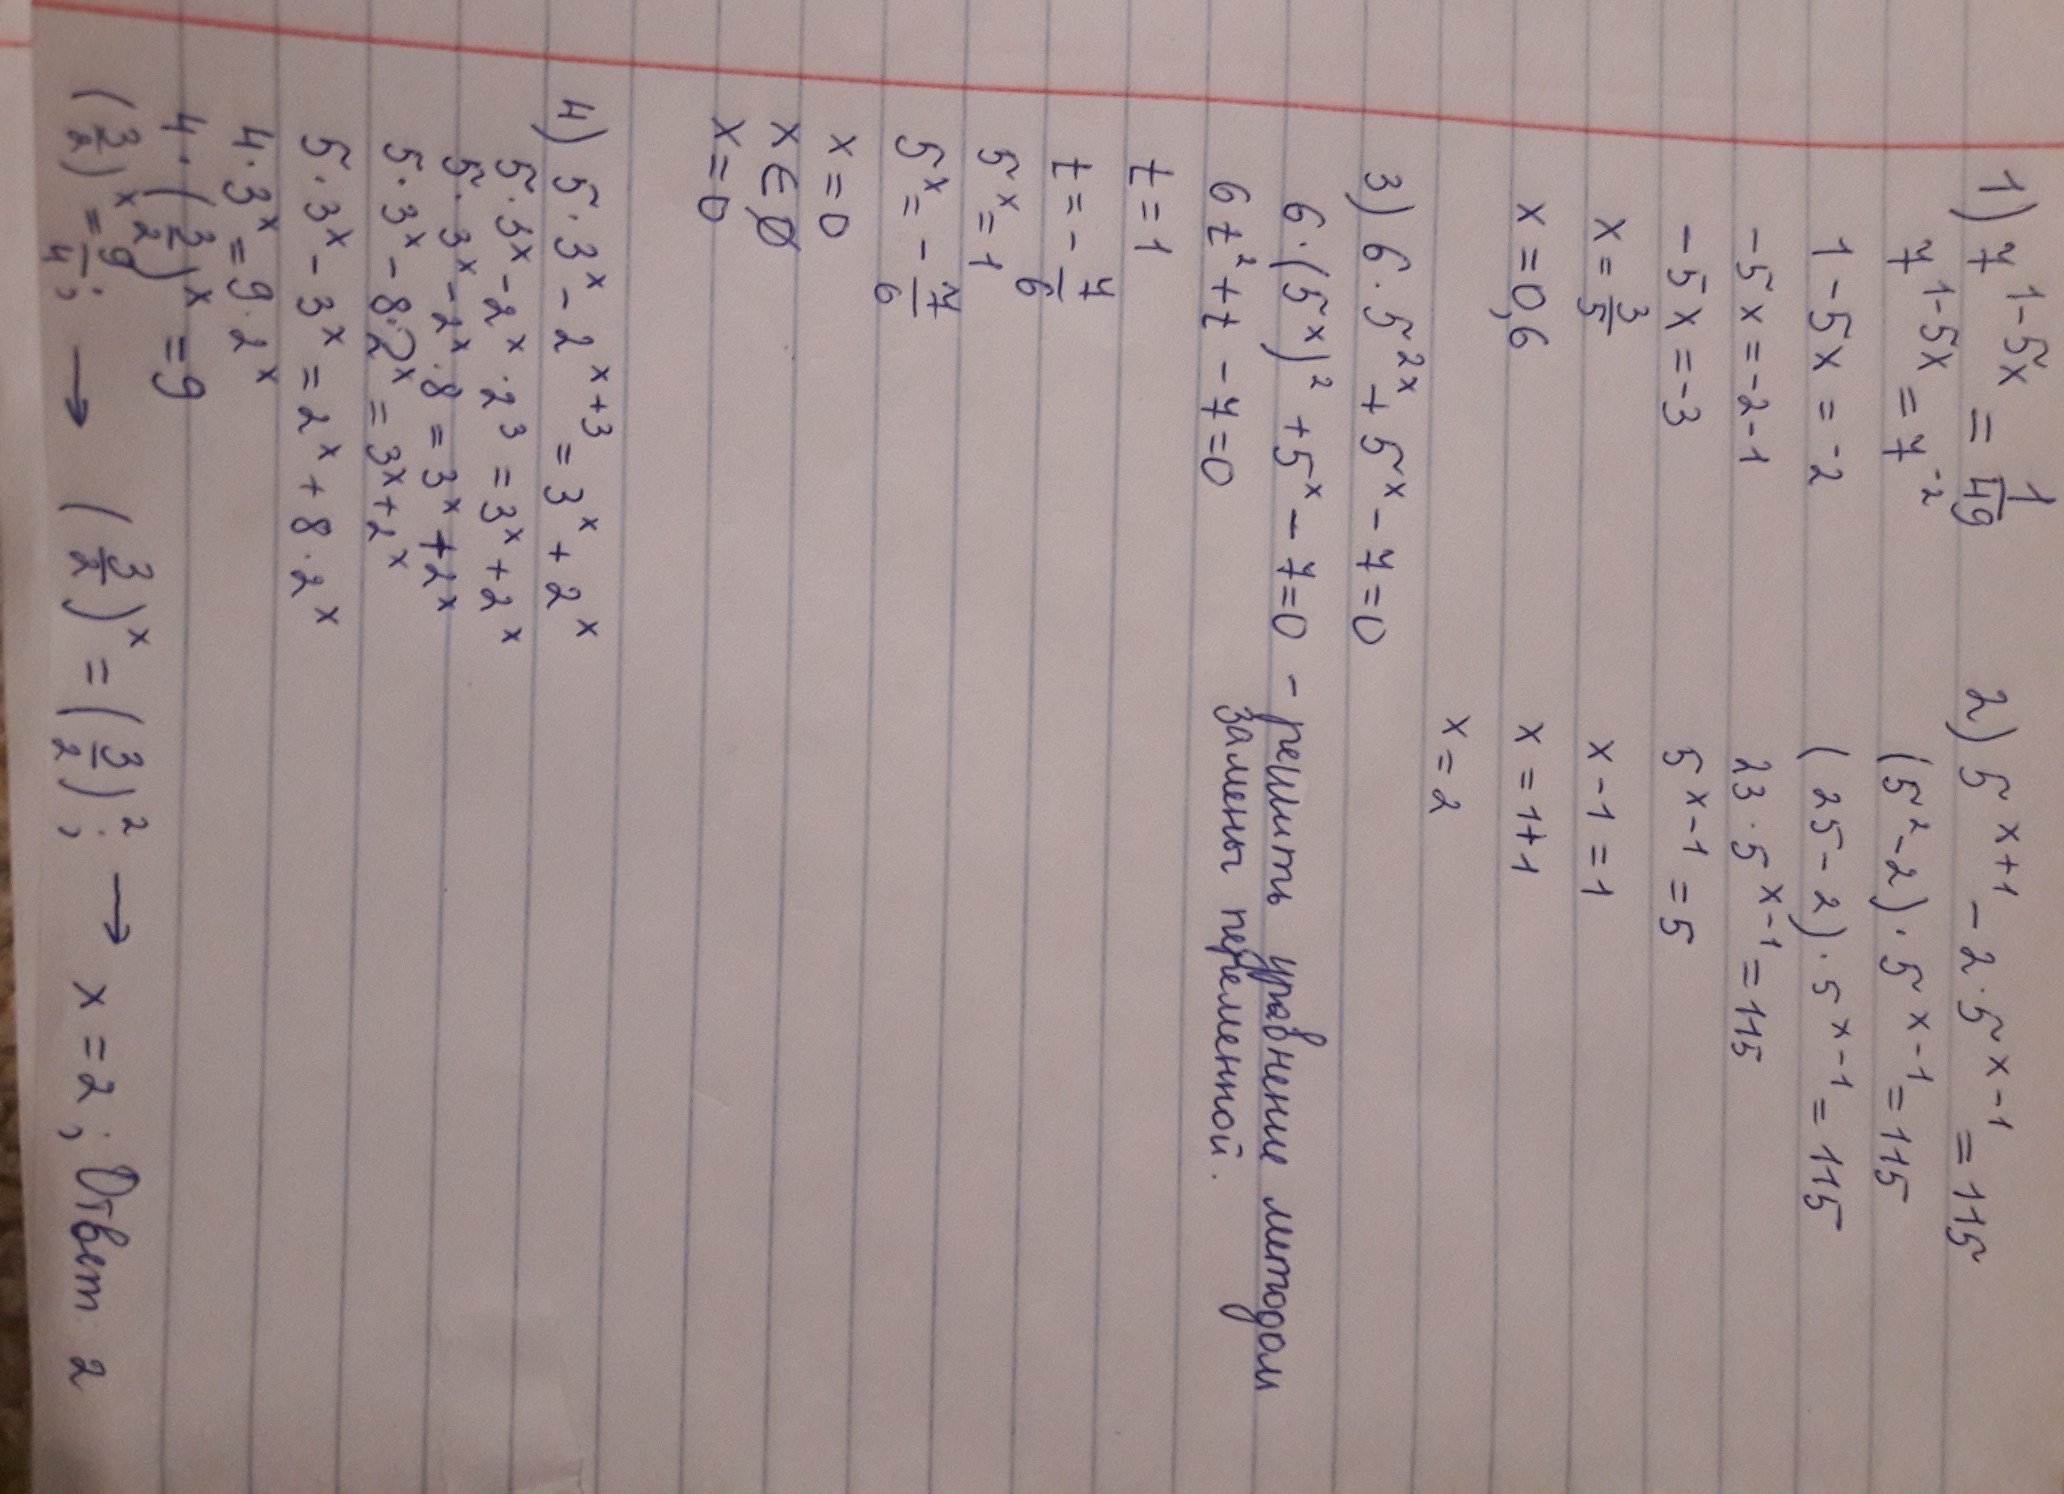 1) 7^(1-5x) = 1/49
7^(1-5x) = 7^(-2)
1 - 5x = -2
-5x = -2 - 1
-5x = -3
x = 3/5
x = 0,6
2) 5^(x+1) - 2·5^(x-1) = 115
(5² - 2)·5^(x-1) = 115
(25 - 2)·5^(x-1) = 115
23·5^(x-1) = 115
5^(x-1) = 5
x - 1 = 1
x = 1+1
x = 2
3) 6·5^(2x) + 5^x - 7 = 0
6·(5^x)² + 5^x - 7 = 0 - решить уравнение митодом
замены переменной.
6t² + t - 7 = 0
t = 1
t = - 7/6
5^x = 1
5^x = - 7/6
x = 0
x ∈ ∅
x = 0
4) 5·3^x - 2^(x+3) = 3^x + 2^x
5·3^x - 2^x·2³ = 3^x + 2^x
5·3^x - 2^x·8 = 3^x + 2^x
5·3^x - 8·2^x = 3^x + 2^x
5·3^x - 3^x = 2^x + 8·2^x
4·3^x = 9·2^x
4·(3/2)^x = 9
(3/2)^x = 9/4; → (3/2)^x = (3/2)²; → x = 2; Ответ: 2